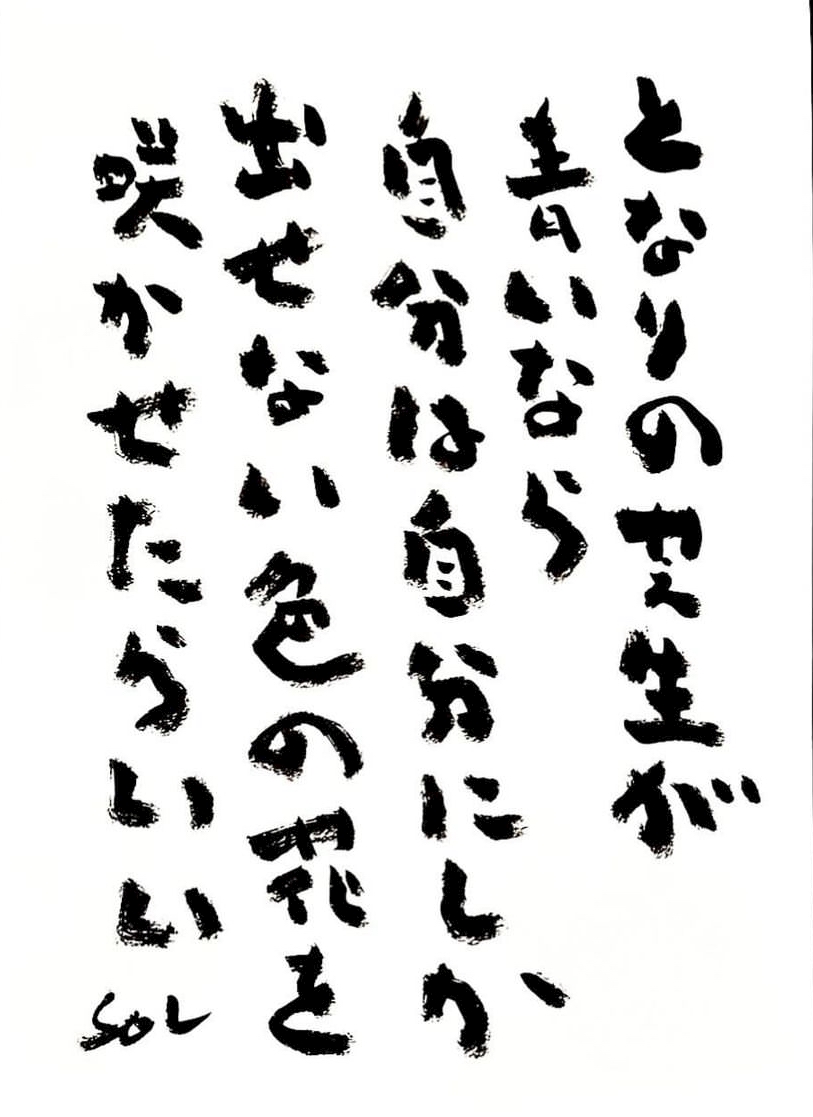 となりの芝生が
青いなら
自分は自分にしか
出せない色の花を
咲かせたらいい
SOL